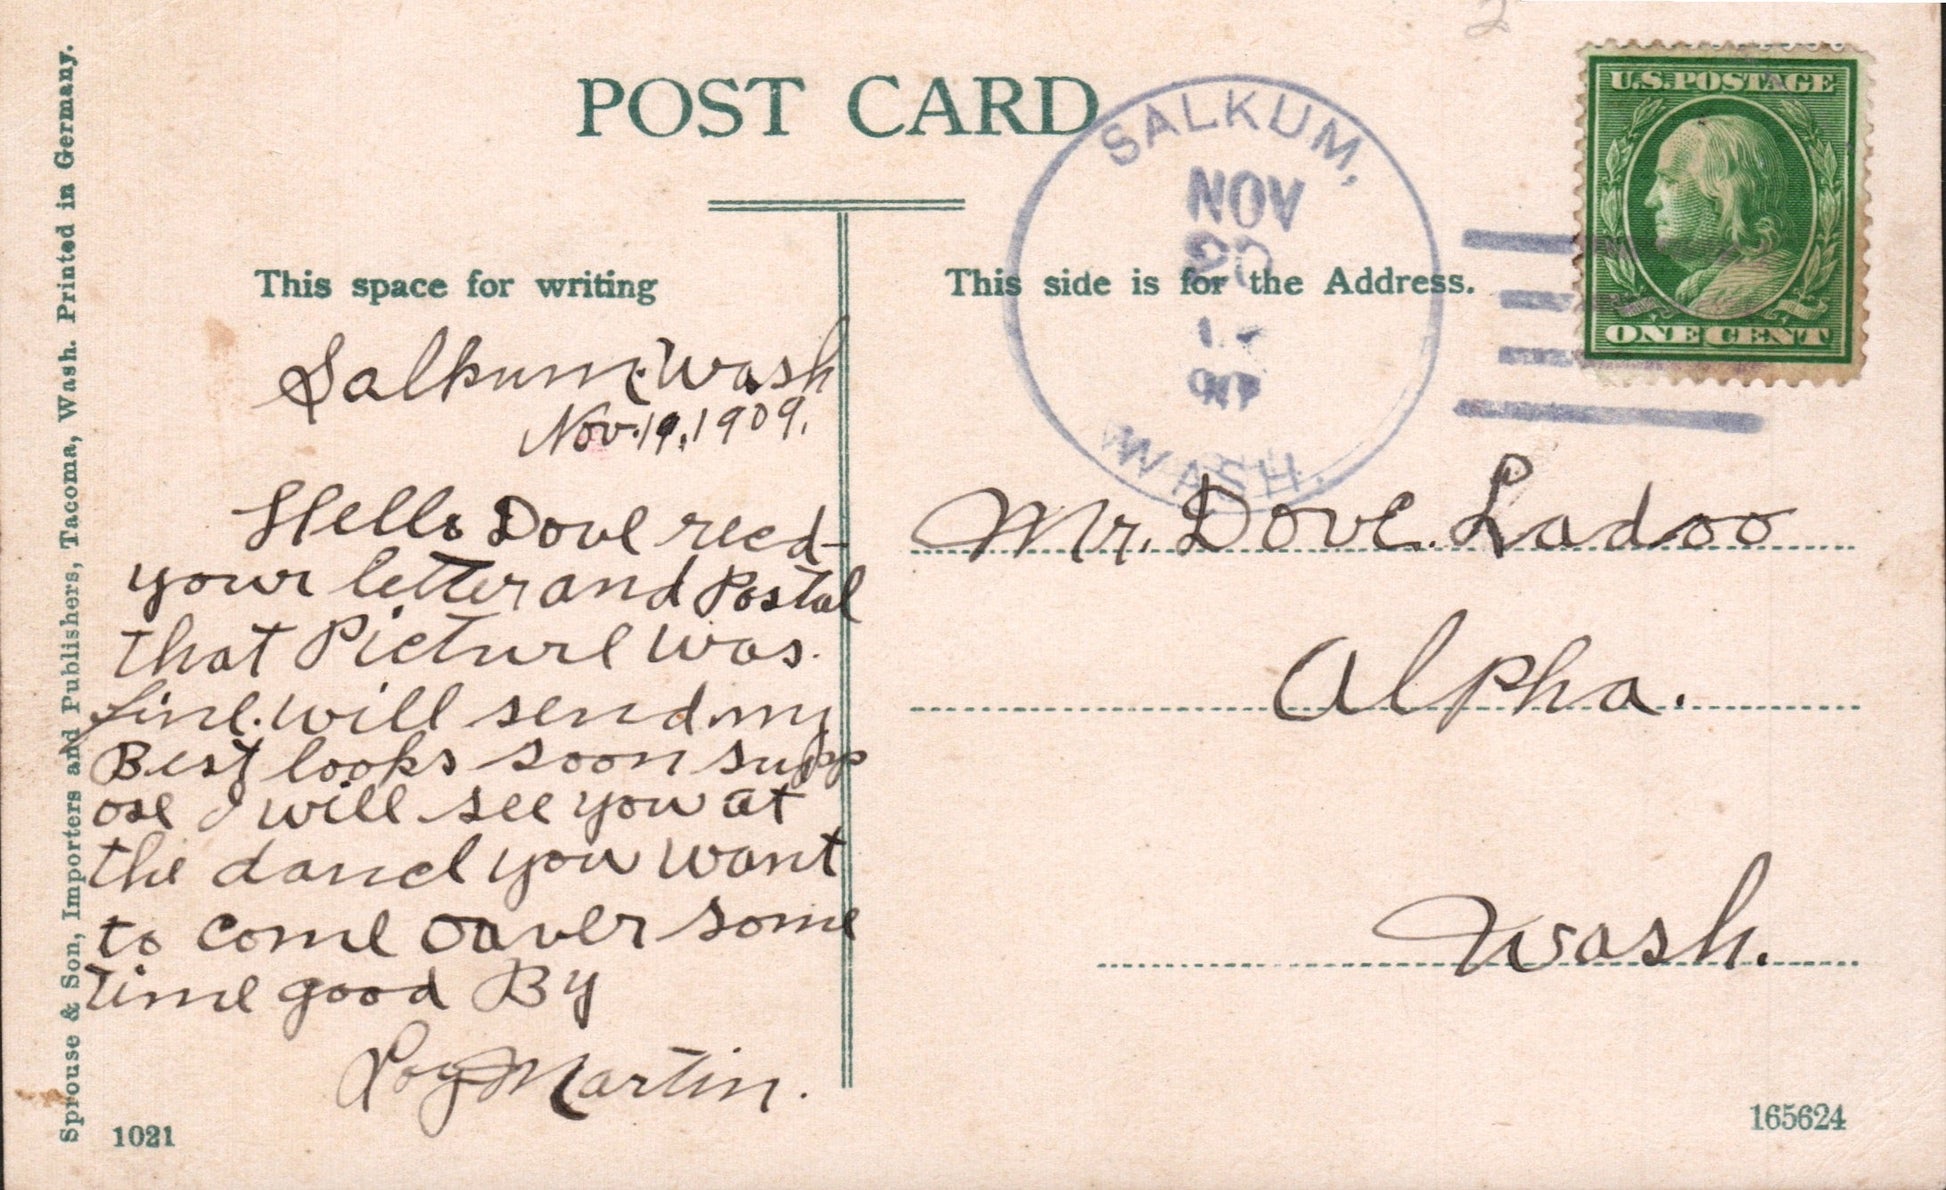 POST CARD
This space for writing
Salkum. Wash
Nov. 19, 1909.
Hello Dove recd
your letter and Postal
that Picture was.
fine. will send my
Best looks soon supp
ose I will see you at
the dance you want
to come oaver some
time good By
Roy Martin.
1021
Sprouse & Son, Importers and Publishers, Tacoma, Wash. Printed in Germany.
SALKUM,
NOV
20
WASH.
U.S. POSTAGE
ONE CENT
This side is for the Address.
Mr. Dove. Ladoo
Alpha.
Wash.
165624
2